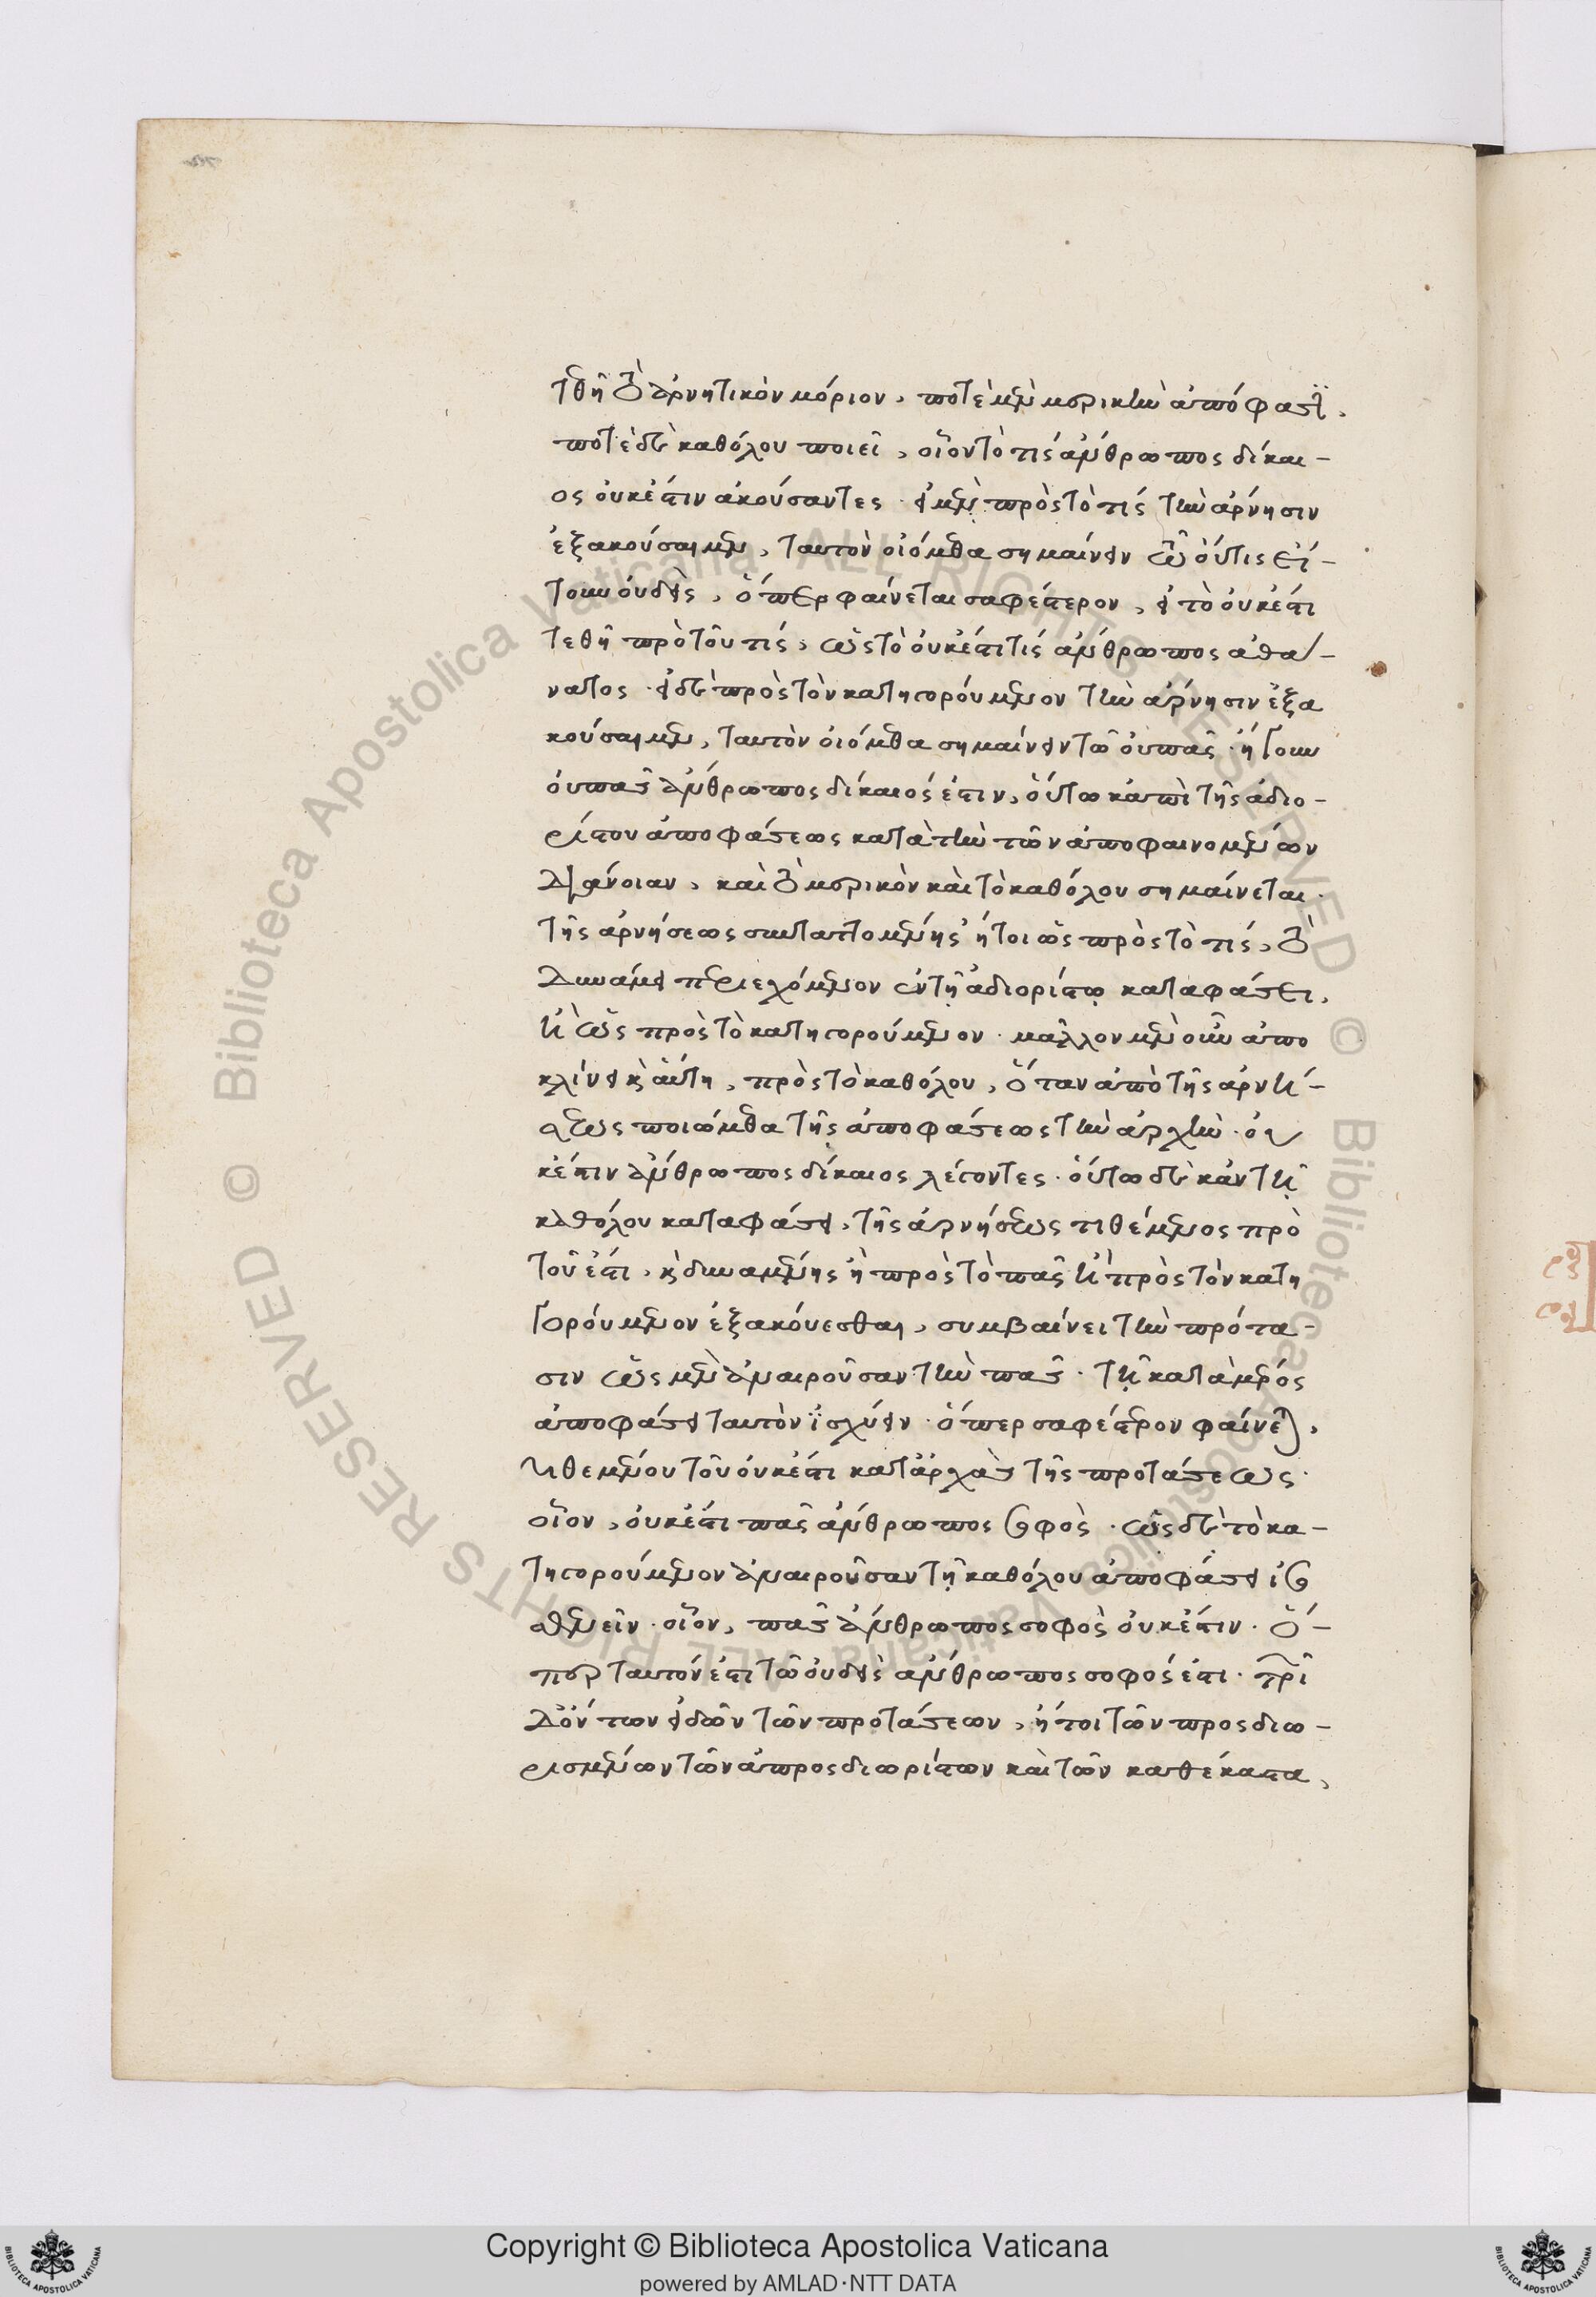 τεθῆ τὸ ἀρνητικὸν μόριον, ποτὲ μὲν μερικὴν ἀπόφασιν,
ποτὲ δὲ καθόλου ποιεῖ, οἷον τὸ τίς ἄνθρωπος δίκαι-
ος οὐκ ἔστιν ἀκούσαντες. εἰ μὲν πρὸς τὸ τίς τὴν ἄρνησιν
ἐξακούσαιμεν, ταυτὸν οἰόμεθα σημαίνειν τῶ οὔτις εἴ-
τουν οὐδείς, ὅπερ φαίνεται σαφέστερον, εἰ τὸ οὐκ ἔστι
τεθῆ πρὸ τοῦ τίς, ὡς τὸ οὐκ ἔστι τίς ἄνθρωπος ἀθά-
νατος. εἰ δὲ πρὸς τὸν κατηγορούμενον τὴν ἄρνησιν ἐξα
κούσαιμεν, ταυτὸν οἰόμεθα σημαίνειν τῶ οὐ πᾶς. ἤγουν
οὐ πᾶς ἄνθρωπος δίκαιός ἐστιν, οὕτω κἀπὶ τῆς ἀδιο-
ρίστου ἀποφάσεως κατὰ τὴν τῶν ἀποφαινομένων
διάνοιαν, καὶ τὸ μερικὸν καὶ τὸ καθόλου σημαίνεται.
τῆς ἀρνήσεως συνταττομένης ἤτοι ὡς πρὸς τὸ τίς, τὸ
δυνάμει περιεχόμενον ἐν τῇ ἀδιορίστῳ καταφάσει,
ἢ ὡς πρὸς τὸ κατηγορούμενον. μᾶλλον μὲν οὖν ἀπο
κλίνει καὶ αὕτη, πρὸς τὸ καθόλου, ὅταν ἀπὸ τῆς ἀρνή-
σεως ποιώμεθα τῆς ἀποφάσεως τὴν ἀρχήν. οὐ
κέστιν ἄνθρωπος δίκαιος λέγοντες. οὕτω δὲ κἀν τῇ
καθόλου καταφάσει, τῆς ἀρνήσεως τιθέμενος πρὸ
τοῦ ἐστι, καὶ δυναμένης ἢ πρὸς τὸ πᾶς ἢ πρὸς τὸν κατη
γορούμενον ἐξακούεσθαι, συμβαίνει τὴν πρότα-
σιν ὡς μὲν ἀναιροῦσαν τὴν πᾶς. τῇ κατὰ μέρος
ἀποφάσει ταυτὸν ἰσχύειν. ὅπερ σαφέστερον φαίνεται,
τιθεμένου τοῦ οὐκ ἔστι κατ' ἀρχὰς τῆς προτάσεως.
οἷον, οὐκ ἔστι πᾶς ἄνθρωπος σοφὸς. ὡς δὲ τὸ κα-
τηγορούμενον ἀναιροῦσαν τῇ καθόλου ἀποφάσει ἰσο
σθενεῖν. οἷον, πᾶς ἄνθρωπος σοφὸς οὐκ ἔστιν. ὅ-
περ ταυτόν ἐστι τῶ οὐδεὶς ἄνθρωπος σοφός ἐστι. τρι
ῶν ὄντων εἰδῶν τῶν προτάσεων, ἤτοι τῶν προσδιω-
ρισμένων τῶν ἀπροσδιωρίστων καὶ τῶν καθέκαστα,